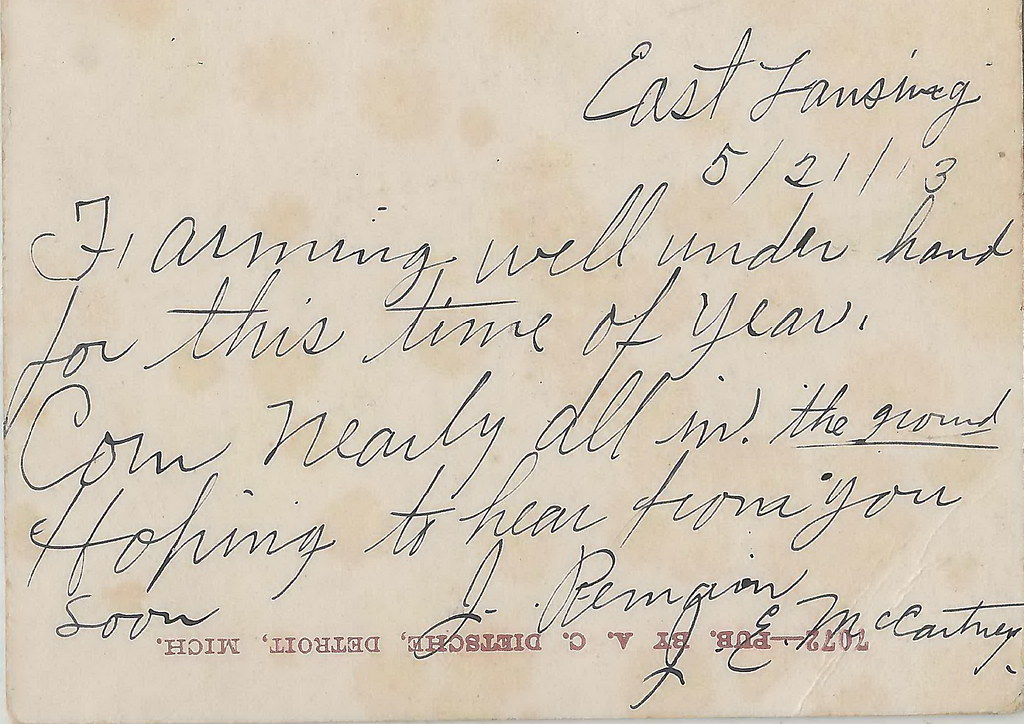 East Lansing
5/21/13
Farming well under hand
for this time of year.
Corn nearly all in. the ground
Hoping to hear from you
soon I. Remain
J. E. McCartney
7072—PUB. BY A. C. DIETSCHE, DETROIT, MICH.